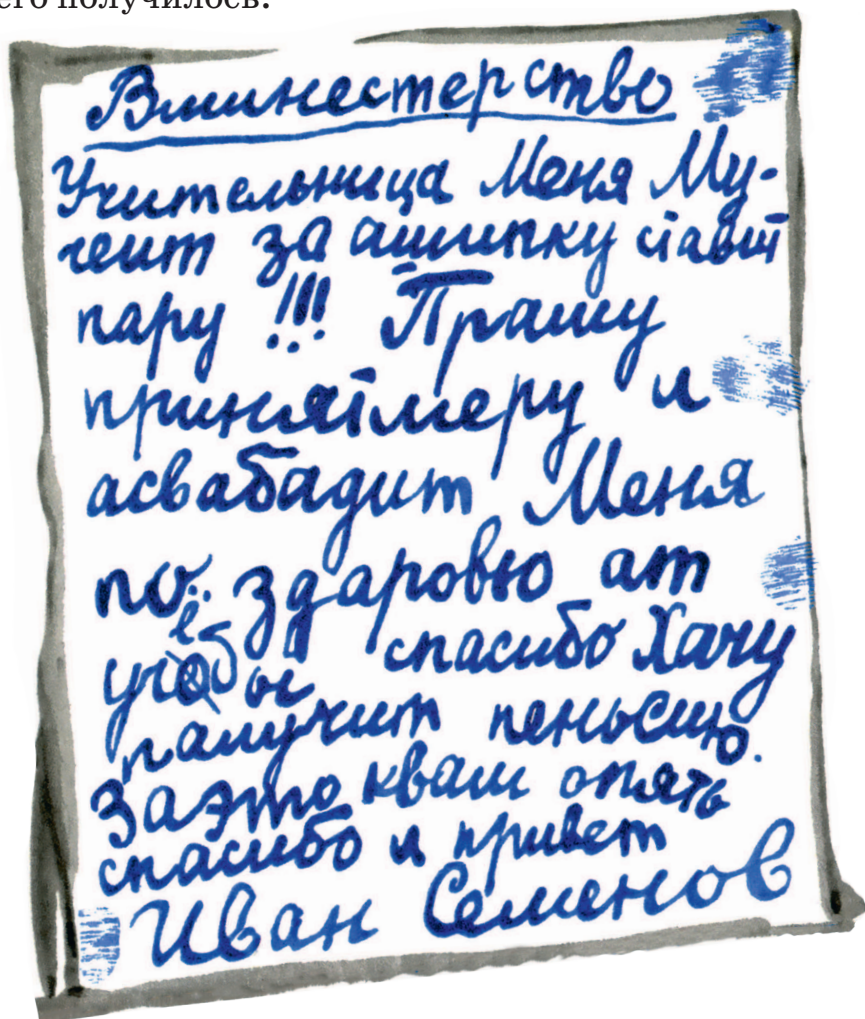 его получилось.
Вминестерство
Учительница Меня Му-
чеит за ашипку ставит
пару !!! Прашу
принятмеру и
асвабадит Меня
по здаровю ат
учёбы спасибо Хачу
палучит пеньсию.
Заэто квам опять
спасибо и привет
Иван Семенов